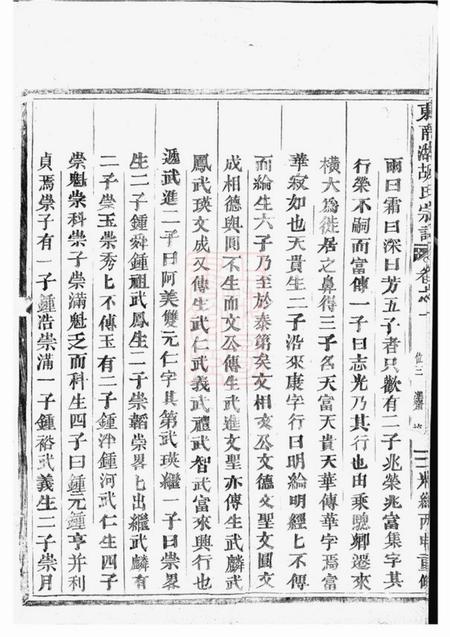 東南湖胡氏宗譜 卷之一
光緒丙申重修
雨曰霜曰深曰芳五子者只歡有二子兆榮兆富集字其
行榮不嗣而富傳一子曰志光乃其行也由乘驄鄉遷來
橫大為徙居之鼻得三子名天富天貴天華傳華字焉當
華寂如也天貴生二子沿來庚字行曰明綸明經七不傳
而綸生六子乃至於泰第矣文相文公文德文聖文圓文
成相德與圓不生而文公傳生武進文聖亦傳生武麟武
鳳武瑛文成又傳生武仁武義武禮武智武富來興行也
遞武進二子曰阿美雙元仁字其第武瑛繼一子曰崇畧
生二子鍾舜鍾祖武鳳生二子崇韜崇畧七出繼武麟有
二子崇玉崇秀七不傳玉有二子鍾津鍾河武仁生四子
崇魁崇科崇子崇滿魁乏而科生四子曰鍾元鍾亨并利
貞焉崇子有一子鍾浩崇滿一子鍾裕武義生二子崇月